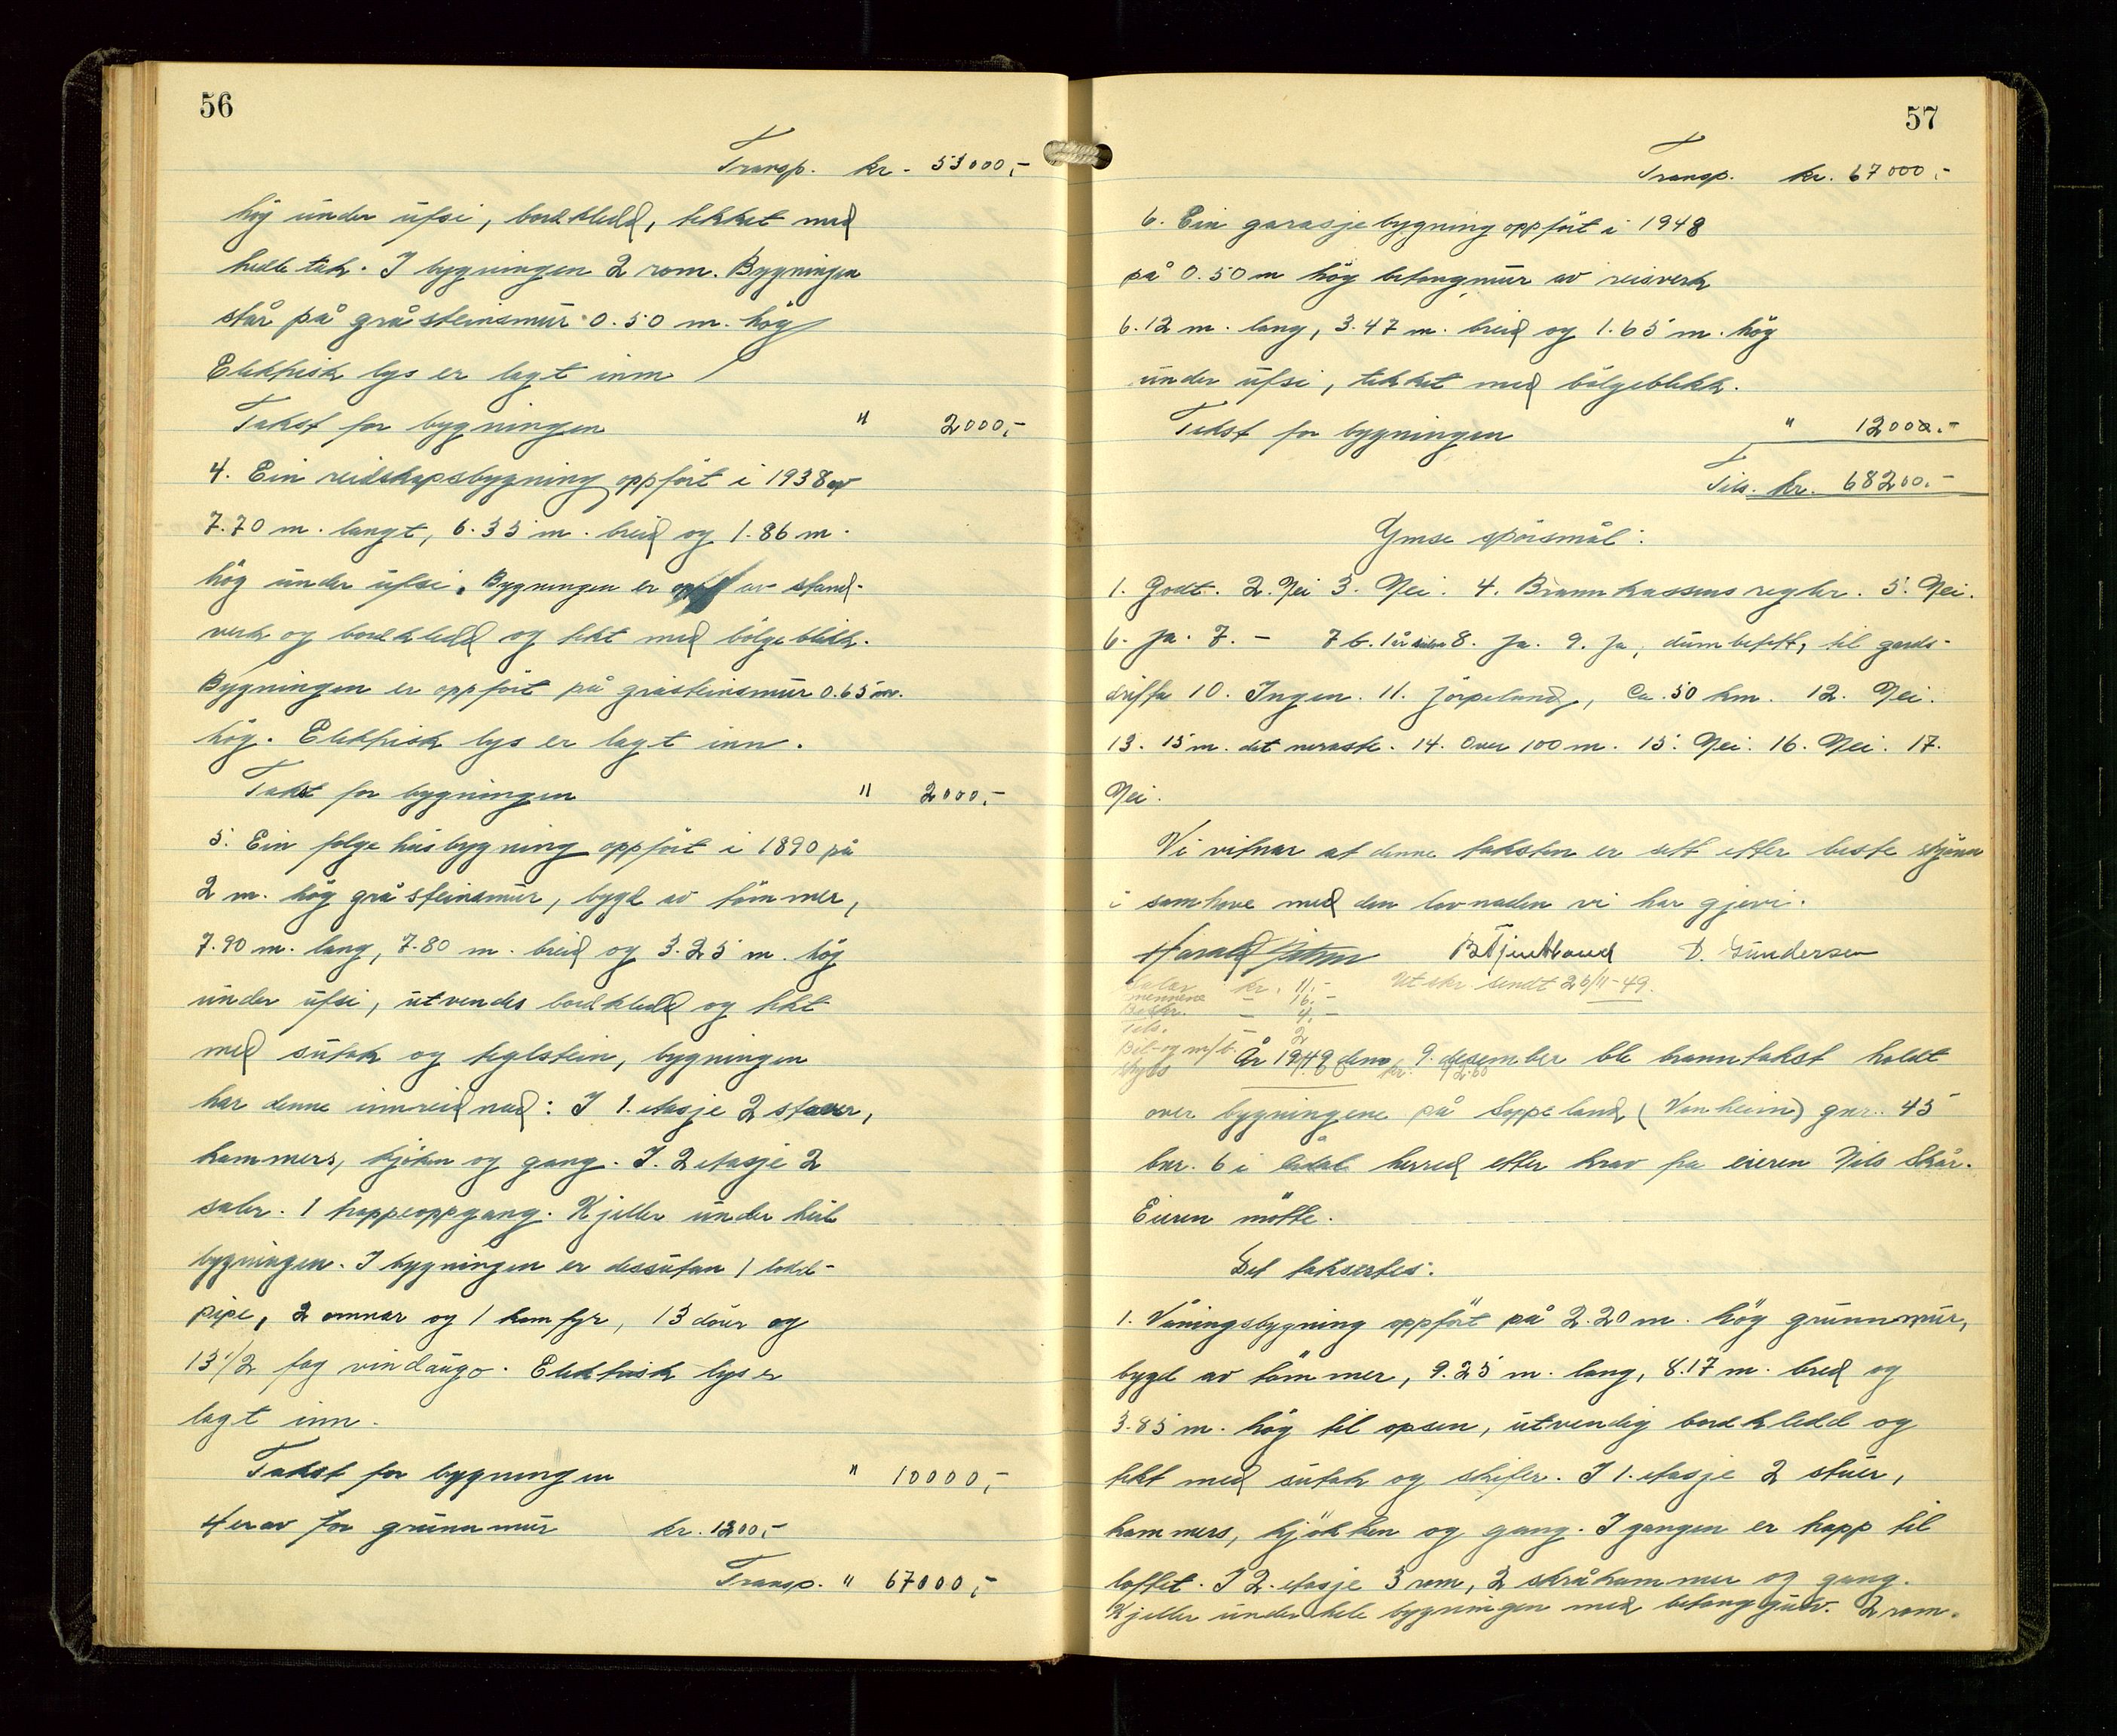 56
Transp. kr. 53000,-
høg under ufsi, bordkledd, tekket med
helletak. I bygningen 2 rom. Bygningen
står på gråsteinsmur 0.50 m. høg
Elektrisk lys er lagt inn
Takst for bygningen " 2000,-
4. Ein reidskapsbygning oppfört i 1938 av
7.70 m. langt, 6.35 m. breid og 1.86 m.
høg under ufsi. Bygningen er av stend-
verk og bordkledd og tekt med bölgeblikk.
Bygningen er oppfört på gråsteinsmur 0.65 m.
høg. Elektrisk lys er lagt inn.
Takst for bygningen " 2000,-
5. Ein folgehusbygning oppfört i 1890 på
2 m. høg gråsteinsmur, bygd av tömmer,
7.90 m. lang, 7.80 m. breid og 3.25 m. høg
under ufsi, utvendes bordkledd og tekt
med sutak og teglstein, bygningen
har denne innreidnad: I 1. etasje 2 stover,
kammers, kjöken og gang. I. 2 etasje 2
saler. 1 trappeoppgang. Kjeller under heile
bygningen. I bygningen er dessutan 1 lodd-
pipe, 2 omnar og 1 komfyr, 13 dörer og
13 1/2 fag vindaugo. Elektrisk lys er
lagt inn.
Takst for bygningen " 10000,-
Herav for grunnmur kr. 1200,-
Transp. " 67000,-
57
Transp. kr. 67000,-
6. Ein garasjebygning oppfört i 1948
på 0.50 m høg betongmur av reisverk
6.12 m. lang, 3.47 m. breid og 1.65 m. høg
under ufsi, tekket med bölgeblikk.
Takst for bygningen " 1200.-
Tils. kr. 68200.-
Ymse spörsmål:
1. Godt. 2. Nei 3. Nei. 4. Brannkassens regler. 5. Nei.
6. Ja. 7. - 7 b. 1 år sidan 8. Ja. 9. Ja, til gards-
drifta 10. Ingen. 11. Jörpeland, Ca. 50 km. 12. Nei.
13. 15 m. det næraste. 14. Over 100 m. 15. Nei. 16. Nei. 17.
Nei.
Vi vitnar at denne taksten er sett etter beste skjönn
i samhøve med den lovnaden vi har gjevi.
Harald B Tjentland D. Gundersen
Salær kr. 11.- Utskr. sendt 26/11-49.
mennene - 16.-
- 4.-
Tils.
Bil- og m/b-
skyss
År 1949 den 9. desember ble branntakst holdt
over bygningene på Soppeland (Vonheim) gnr. 45
bnr. 6 i herred etter krav fra eieren Nils Skår.
Eieren mötte.
Det taksertes:
1. Våningsbygning oppfört på 2.20 m. høg grunnmur,
bygd av tömmer, 9.25 m. lang, 8.17 m. bred og
3.85 m. høg til opsen, utvendig bordkledd og
tekt med sutak og skifer. I 1. etasje 2 stuer,
kammers, kjökken og gang. I gangen er trapp til
loftet. I 2. etasje 3 rom, 2 skråkammer og gang.
Kjeller under hele bygningen med betonggulv. 2 rom.